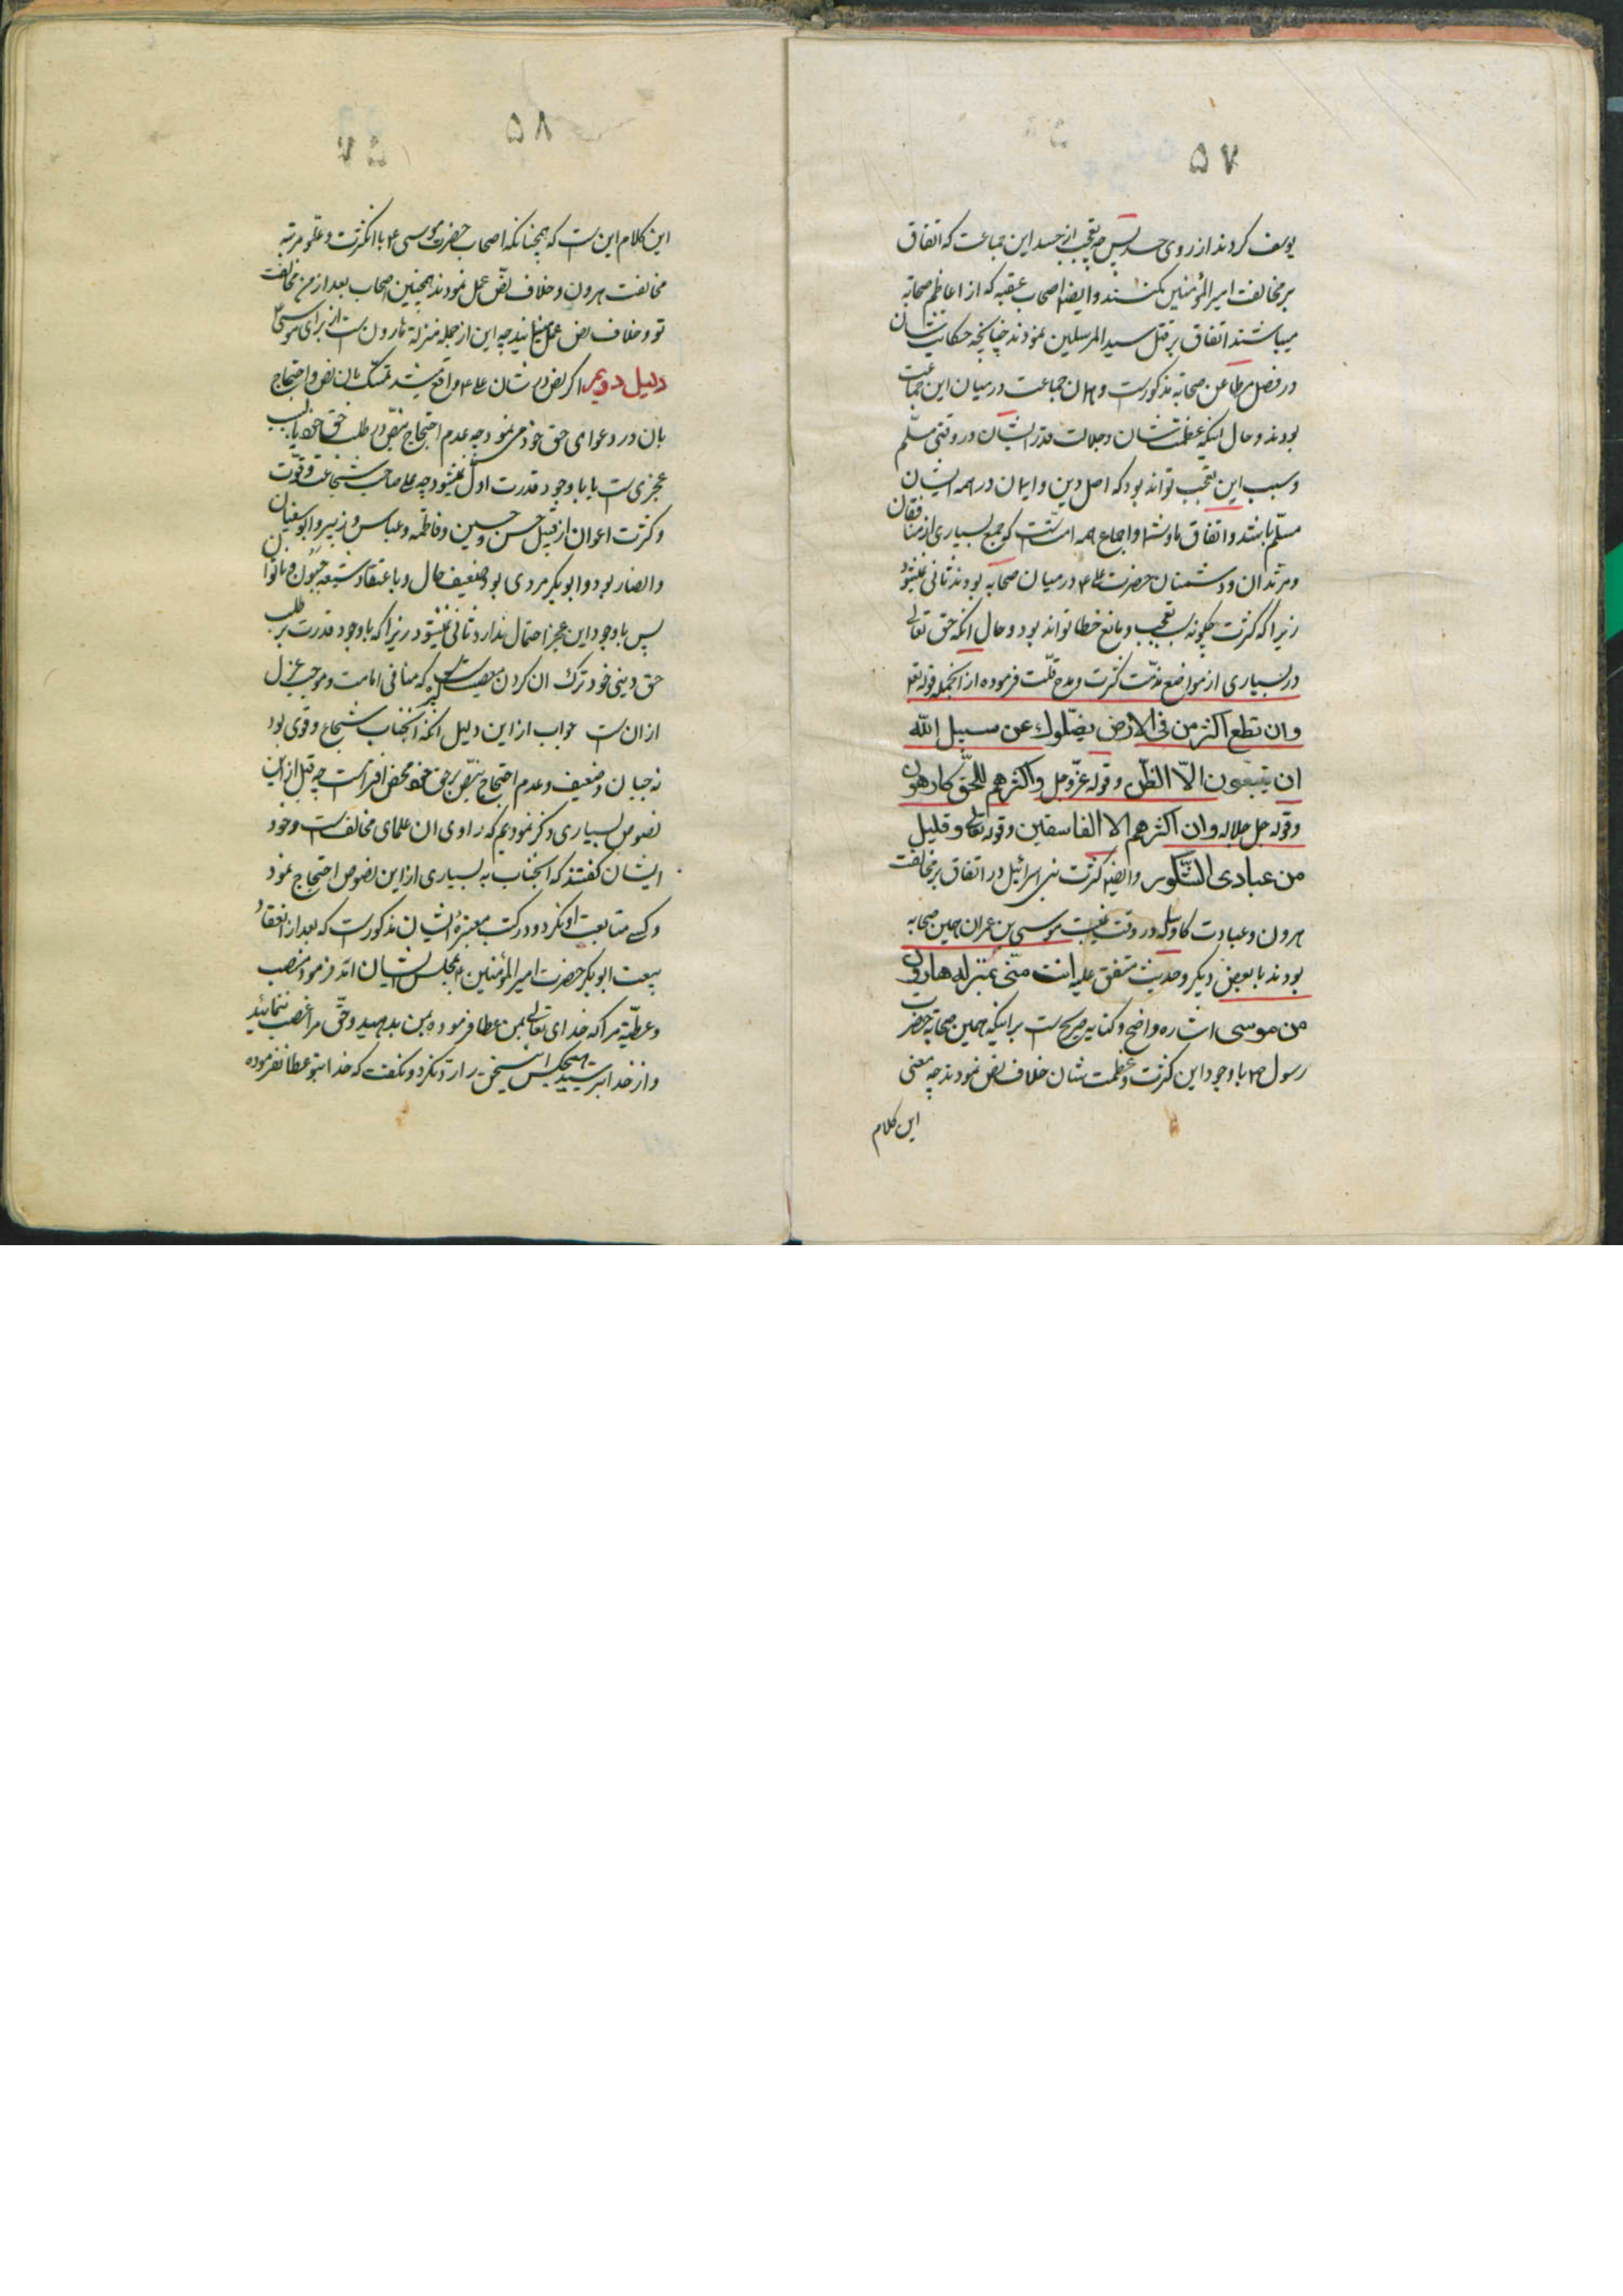 ۵۷
یوسف کردند از روی حسد پس چه تعجب از حسد این جماعت که اتفاق
بر مخالفت امیر المؤمنین کنند و ایضا اصحاب عقبه که از اعاظم صحابه
میباشند اتفاق بر قتل سید المرسلین نمودند چنانچه حکایتشان
در فصل مطاعن صحابه مذکورست و همان جماعت در میان این جماعت
بودند و حال آنکه عظمت شان و جلالت قدر ایشان در وقتی مسلّم
و سبب این تعجب تواند بود که اصل دین و ایمان در همه ایشان
مسلّم باشد و اتفاق و اجماع همه امت کو جمع بسیاری از منافقان
و مرتدان و دشمنان حضرت علی ع در میان صحابه بودند ثانی نمیشود
زیرا که کثرت چگونه سبب تعجب و مانع خطا تواند بود و حال آنکه حق تعالی
در بسیاری از مواضع مذمّت کثرت و مدح قلّت فرموده از آنجمله قوله تع
وان تطع اکثر من فی الارض یضلّوك عن سبیل الله
ان یتبعون الاّ الظنّ و قوله عزّ و جل و اکثرهم للحقّ کارهون
و قوله جل جلاله و ان اکثرهم الا الفاسقین و قوله تعالی و قلیل
من عبادی الشّکور و ایضا کثرت بنی اسرائیل در اتفاق بر مخالفت
هرون و عبادت کاو در وقت غیبت موسی بن عمران همین صحابه
بودند با بعضی دیگر و حدیث متفق علیه انت منّی بمنزله هارون
من موسی اشاره واضح و کنایه صریح ست بر اینکه همین صحابه حضرت
رسول ص با وجود این کثرت و عظمت شان خلاف نص نمودند چه معنی
این کلام
۵۸
این کلام این ست که همچنانکه اصحاب حضرت موسی ع با انکثرت و علو مرتبه
مخالفت هرون و خلاف نصّ عمل نمودند همچنین اصحاب بعد از من مخالفت
تو و خلاف نص عمل مینمایند چه این از جمله منزله هارون ست از برای موسی ع
دلیل دویم اکر نص در شان علی ع واقع میشد تمسّک بان نص و احتجاج
بان در دعوای حق خود می نمود چه عدم احتجاج بنصّ در طلب حق خود یا بسبب
عجزی ست یا با وجود قدرت اول نمیشود چه علی صاحب شجاعت و قوّت
و کثرت اعوان از قبیل حسن و حسین و فاطمه و عباس و زبیر و ابوسفیان
و انصار بود و ابوبکر مردی بود ضعیف حال و باعتقاد شیعه جبون و ناتوان
پس با وجود این عجز احتمال ندارد ثانی نمیشود زیرا که با وجود قدرت بر طلب
حق دینی خود ترك ان کردن معصیت ست که منافی امامت و موجب عزل
از ان ست جواب از این دلیل انکه آنجناب شجاع و قوی بود
نه جبان و ضعیف و عدم احتجاج بنصّ بر حق خود محض افتراست چه قبل از این
نصوص بسیاری ذکر نمودیم که راوی ان علمای مخالف ست و خود
ایشان کفتند که آنجناب به بسیاری از این نصوص احتجاج نمود
و کسی متابعت او نکرد و در کتب معتبره ایشان مذکورست که بعد از انعقاد
بیعت ابوبکر حضرت امیر المؤمنین ع بمجلس ایشان آمد فرمود منصب
و عطیّه مرا که خدای تعالی بمن عطا فرموده بمن بدهید و حقّ مرا غصب ننمائید
و از خدا بترسید هیچکس این سخن را رد نکرد و نکفت که خدا بتو عطا نفرموده